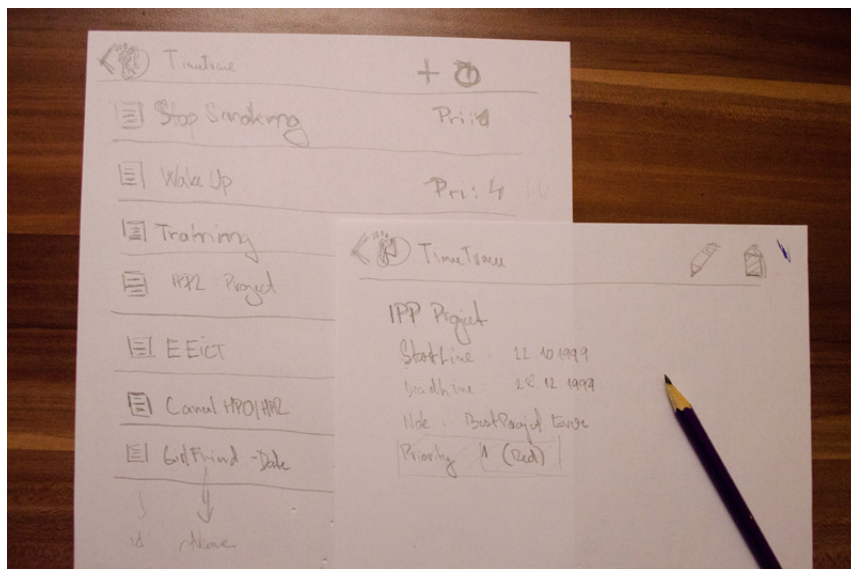 TimeTrace
Stop Smoking Pri:1
Wake Up Pri: 4
Training
Project
EEICT
GirlFriend - Date
id Name
TimeTrace
IPP Project
StartLine : 22.10 1999
Deadline 28.12.1999
Note : Best Project
Priority : 1 (Red)